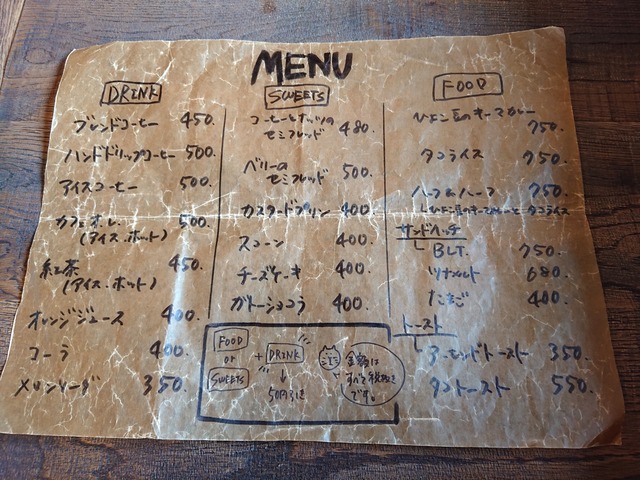 MENU
DRINK
ブレンドコーヒー 450.
ハンドドリップコーヒー 500.
アイスコーヒー 500.
カフェオレ. 500.
(アイス.ホット)
紅茶 450.
(アイス.ホット)
オレンジジュース 400.
コーラ 400.
メロンソーダ 350.
SWEETS
コーヒーとナッツの
セミフレッド 480.
ベリーの
セミフレッド 500.
カスタードプリン 400.
スコーン 400.
チーズケーキ 400.
ガトーショコラ 400.
FOOD
or
SWEETS
+ DRINK
↓
50円引き
金額は
すべて税抜き
です。
FOOD
ひよこ豆のキーマカレー
750.
タコライス 750.
ハーフ&ハーフ 750
└ひよこ豆のキーマカレーと タコライス
サンドイッチ
└ BLT. 750.
ツナメルト 680.
たまご 400.
トースト
└アーモンドトースト 350.
タコトースト 550.